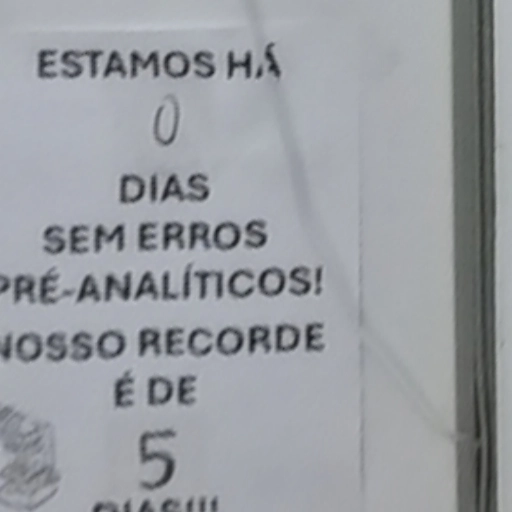 ESTAMOS HÁ
0
DIAS
SEM ERROS
PRÉ-ANALÍTICOS!
NOSSO RECORDE
É DE
5
DIAS!!!